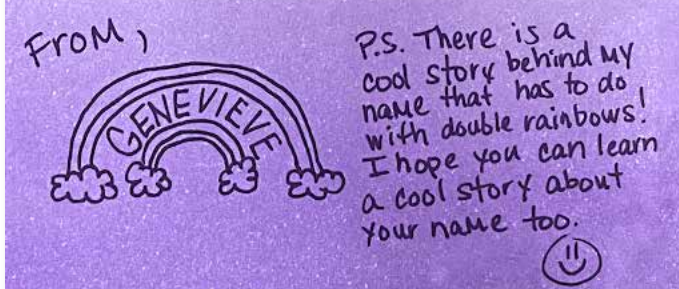 From,
GENEVIEVE
P.S. There is a
cool story behind my
name that has to do
with double rainbows!
I hope you can learn
a cool story about
your name too.